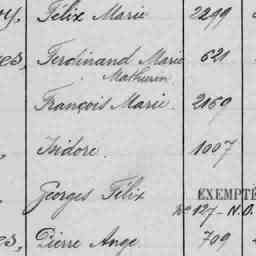 Félix Marie 2299
es, Ferdinand Marie 621
Mathurin
François Marie. 2169
Isidore. 1007
Georges Félix EXEMPTÉ
No 127 - N.O.
es, Pierre Ange 709